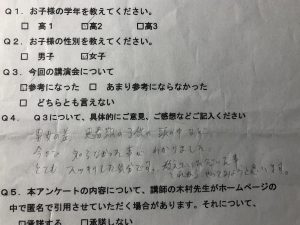 Q1．お子様の学年を教えてください。
□ 高1 □ 高2 □高3
Q2．お子様の性別を教えてください。
□ 男子 ☑女子
Q3．今回の講演会について
☑参考になった □ あまり参考にならなかった
□ どちらとも言えない
Q4． Q3について、具体的にご意見、ご感想などご記入ください
男女の差、思春期の子供の頭の中など、
今まで知らなかった事がわかりました。
とてもスッキリした気分です。
Q5．本アンケートの内容について、講師の木村先生がホームページの
中で匿名で引用させていただく場合があります。それについて、
□承諾する □承諾しない